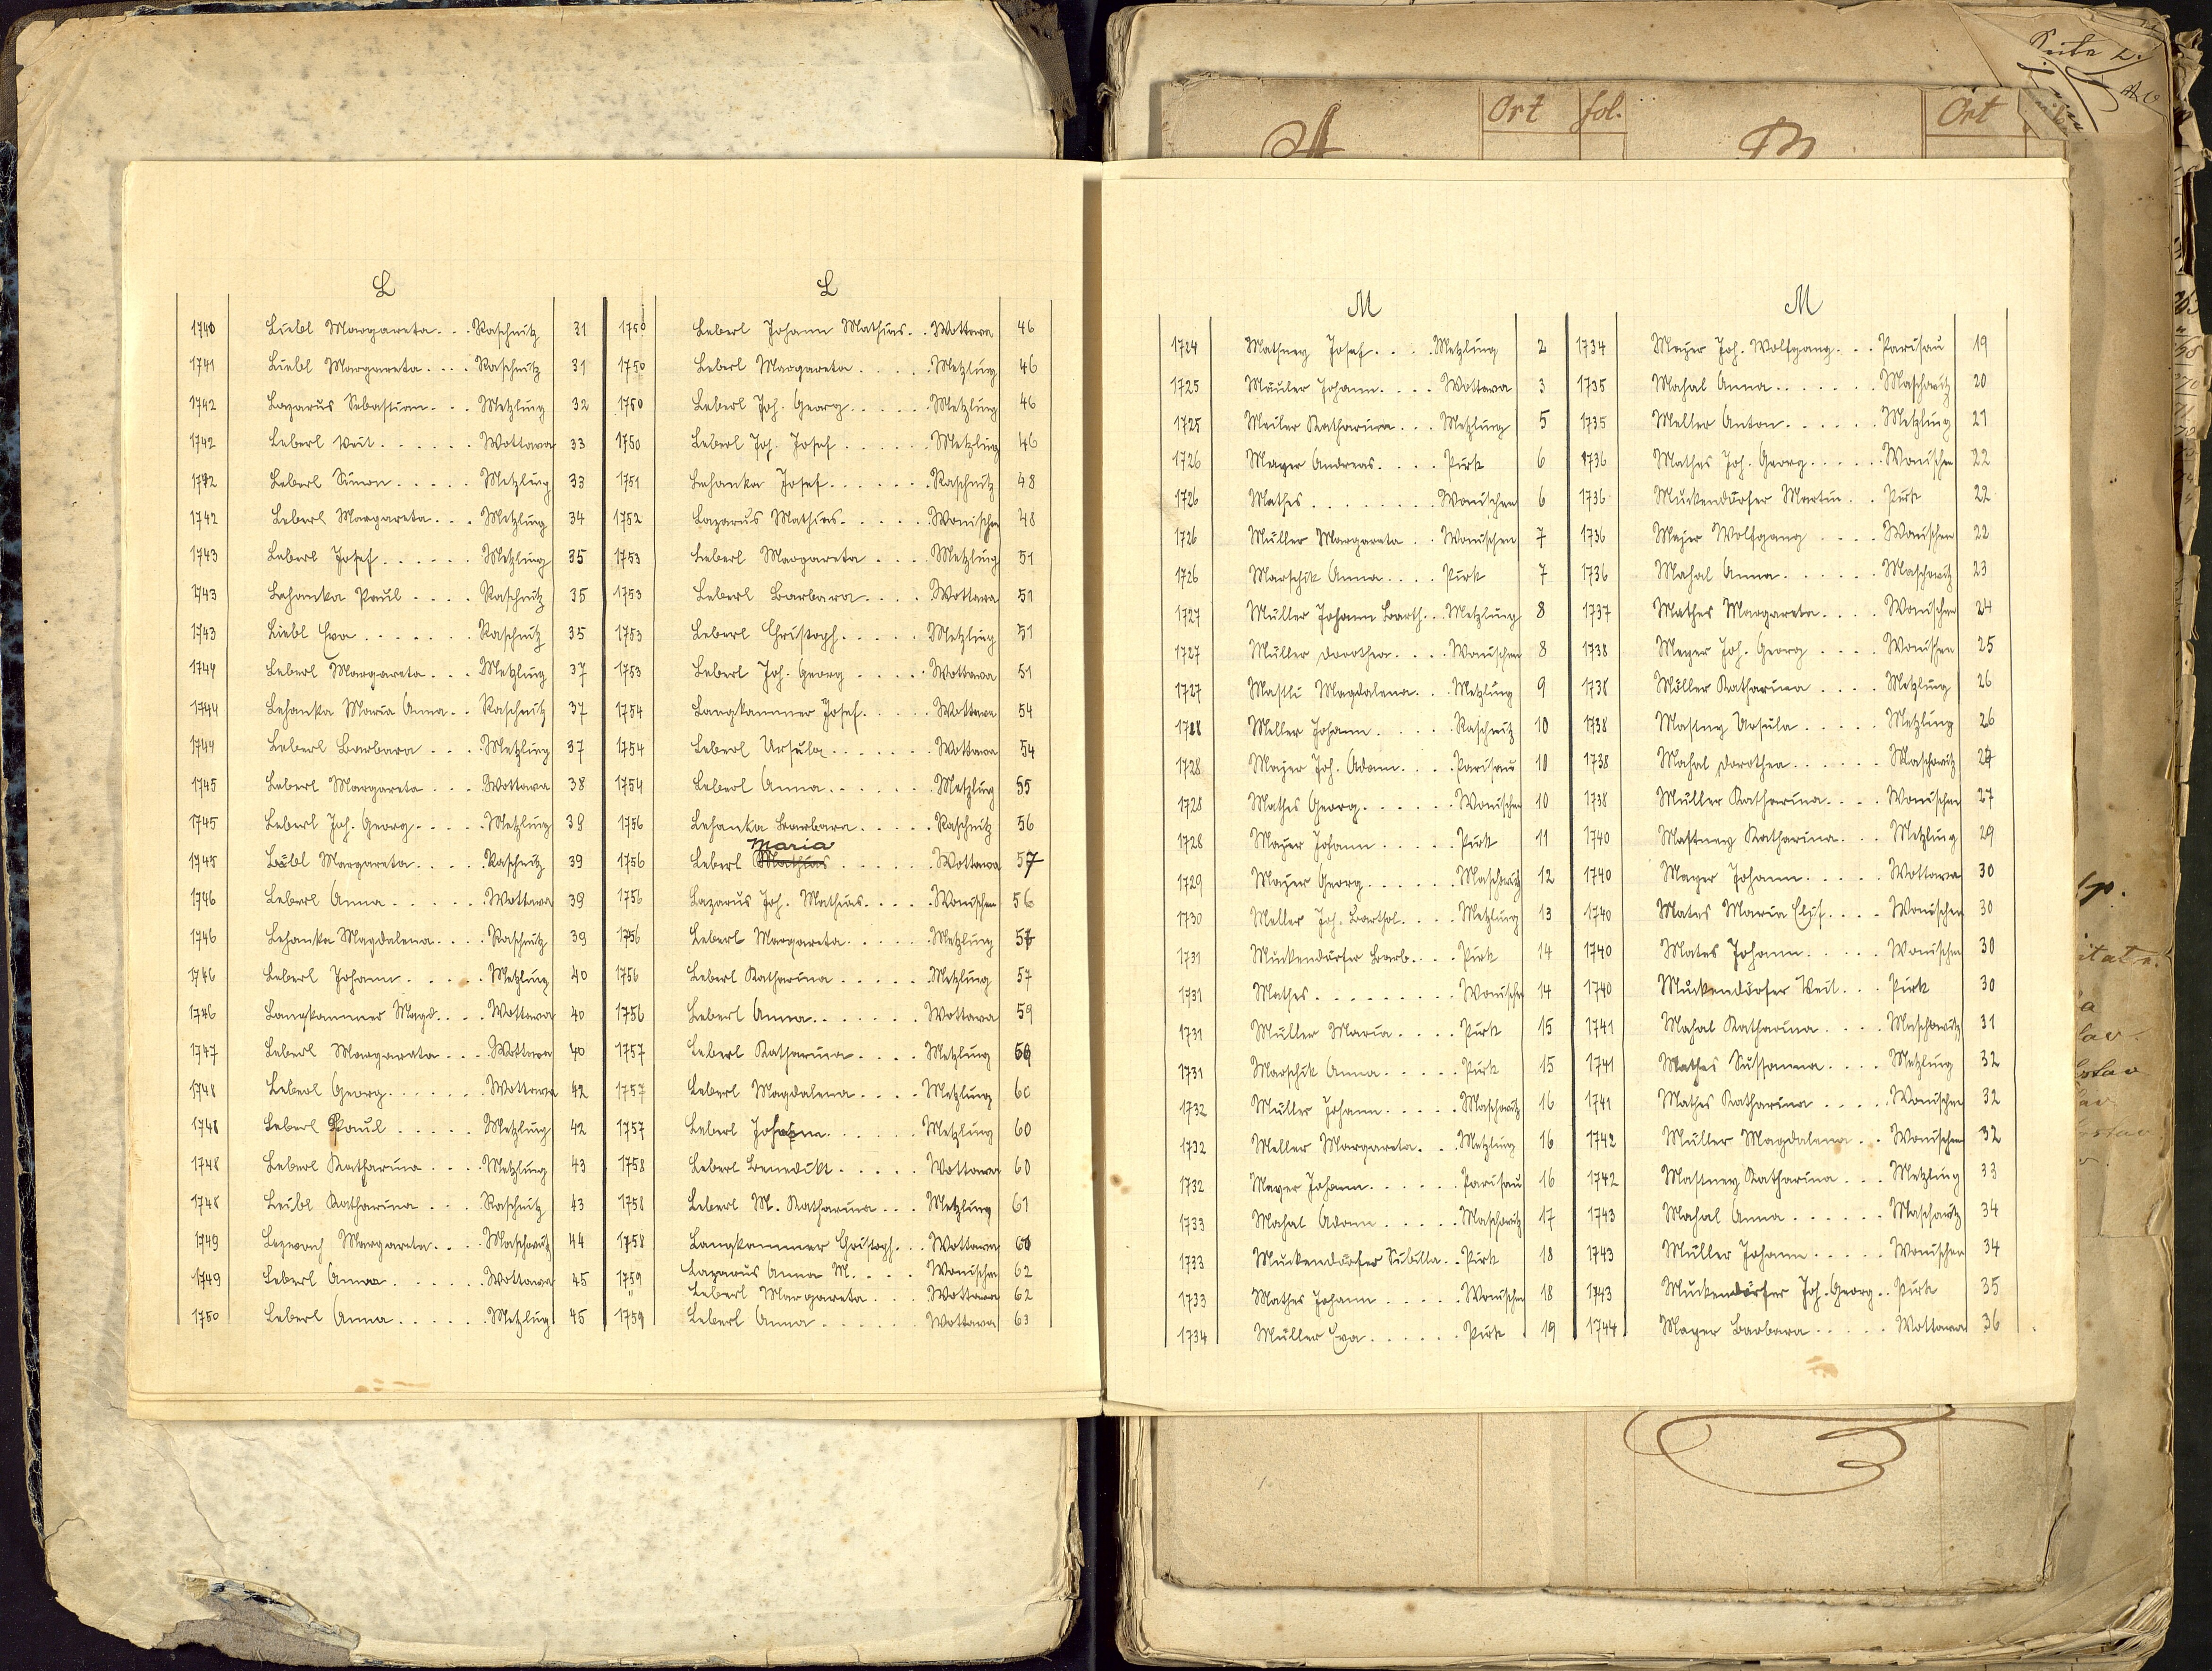 L
1740 Liebl Margareta. . . Raschnitz 31
1741 Liebl Margareta. . . . Raschnitz 31
1742 Lazarus Sebastian. . . Metzling 32
1742 Leberl Veit. . . . . . Wottawa 33
1742 Leberl Simon. . . . . Metzling 33
1742 Leberl Margareta. . . Metzling 34
1743 Leberl Josef. . . . . . Metzling 35
1743 Lehanka Paul. . . . Raschnitz 35
1743 Liebl Eva. . . . . . . Raschnitz 35
1744 Leberl Margareta. . . Metzling 37
1744 Lehanka Maria Anna. . Raschnitz 37
1744 Leberl Barbara. . . . Metzling 37
1745 Leberl Margareta. . . Wottawa 38
1745 Leberl Joh. Georg. . . . Metzling 38
1745 Liebl Margareta. . . . Raschnitz 39
1746 Leberl Anna. . . . . . Wottawa 39
1746 Lehanka Magdalena. . . . Raschnitz 39
1746 Leberl Johann. . . . . Metzling 40
1746 Langkammer Magd. . . . Wottawa 40
1747 Leberl Margareta. . . . Wottawa 40
1748 Leberl Georg. . . . . . Wottawa 42
1748 Leberl Paul. . . . . Metzling 42
1748 Leberl Katharina. . . . Metzling 43
1748 Leibl Katharina. . . . Raschnitz 43
1749 Margareta. . . . Maschowitz 44
1749 Leberl Anna. . . . . . Wottawa 45
1750 Leberl Anna. . . . . . Metzling 45
L
1750 Leberl Johann Mathias. . Wottawa 46
1750 Leberl Margareta. . . . . Metzling 46
1750 Leberl Joh. Georg. . . . . . Metzling 46
1750 Leberl Joh. Josef. . . . . . Metzling 46
1751 Lehanka Josef. . . . . . . Raschnitz 48
1752 Lazarus Mathias. . . . . . Wonischen 48
1753 Leberl Margareta. . . . Metzling 51
1753 Leberl Barbara. . . . Wottawa 51
1753 Leberl Christoph. . . . . Metzling 51
1753 Leberl Joh. Georg. . . . . Wottawa 51
1754 Langkammer Josef. . . . . Wottawa 54
1754 Leberl Ursula. . . . . . . Wottawa 54
1754 Leberl Anna. . . . . . . Metzling 55
1756 Lehanka Barbara. . . . . Raschnitz 56
Maria
1756 Leberl Mathias. . . . . . Wottawa 57
1756 Lazarus Joh. Mathias. . . . Wonischen 56
1756 Leberl Margareta. . . . . . Metzling
1756 Leberl Katharina. . . . . . Metzling 57
1756 Leberl Anna. . . . . . . Wottawa 59
1757 Leberl Katharina. . . . Metzling
1757 Leberl Magdalena. . . . Metzling 60
1757 Leberl . . . . . . Metzling 60
1758 Leberl Benedikt. . . . . Wottawa 60
1758 Leberl M. Katharina. . . Metzling 61
1758 Langkammer Christoph. . . Wottawa
1759 Lazarus Anna M. . . . Wonischen 62
" Leberl Margareta. . . Wottawa 62
1759 Leberl Anna. . . . . . . Wottawa 63
M
1724 Mathney Josef. . . . Metzling 2
1725 Mäuler Johann. . . . Wottawa 3
1725 Meiler Katharina. . . Metzling 5
1726 Mayer Andreas. . . . Pirk 6
1726 Mathes. . . . . . . . Wonischen 6
1726 Müller Margareta. . Wonischen 7
1726 Marschik Anna. . . . Pirk 7
1727 Müller Johann Barth. . . Metzling 8
1727 Müller Dorothea. . . . Wonischen 8
1727 Mastli Magdalena. . . Metzling 9
1728 Meller Johann. . . . . . Raschnitz 10
1728 Majer Joh. Adam. . . . Parisau 10
1728 Mathes Georg. . . . . . Wonischen 10
1728 Mayer Johann. . . . . Pirk 11
1729 Majer Georg. . . . . . Maschowitz 12
1730 Meller Joh. Barthol. . . . Metzling 13
1731 Muckendorfer Barb. . . . Pirk 14
1731 Mathes. . . . . . . . . Wonischen 14
1731 Müller Maria. . . . . Pirk 15
1731 Marschik Anna. . . . . Pirk 15
1732 Müller Johann. . . . . Maschowitz 16
1732 Meller Margareta. . . Metzling 16
1732 Mayer Johann. . . . . . Parisau 16
1733 Mahal Adam. . . . . Maschowitz 17
1733 Muckendorfer Sibilla. . Pirk 18
1733 Mathes Johann. . . . . Wonischen 18
1734 Müller Eva. . . . . . Pirk 19
M
1734 Mayer Joh. Wolfgang. . . Parisau 19
1735 Mahal Anna. . . . . . . Maschowitz 20
1735 Meller Anton. . . . . . Metzling 21
1736 Mathes Joh. Georg. . . . . Wonischen 22
1736 Muckendörfer Martin. . Pirk 22
1736 Majer Wolfgang. . . . Wonischen 22
1736 Mahal Anna. . . . . . Maschowitz 23
1737 Mathes Margareta. . . . Wonischen 24
1738 Meyer Joh. Georg. . . . Wonischen 25
1738 Möller Katharina. . . . Metzling 26
1738 Mastny Ursula. . . . . Metzling 26
1738 Mahal Dorothea. . . . . . Maschowitz
1738 Müller Katharina. . . . Wonischen 27
1740 Mastney Katharina. . . Metzling 29
1740 Mayer Johann. . . . . Wottawa 30
1740 Mates Maria Elis. . . . Wonischen 30
1740 Mates Johann. . . . . Wonischen 30
1740 Muckendörfer Veit. . . Pirk 30
1741 Mahal Katharina. . . . Maschowitz 31
1741 Mathes Sussanna. . . . Metzling 32
1741 Mathes Katharina. . . . Wonischen 32
1742 Müller Magdalena. . Wonischen 32
1742 Mastney Katharina. . . Metzling 33
1743 Mahal Anna. . . . . . Maschowitz 34
1743 Müller Johann. . . . . Wonischen 34
1743 Muckendörfer Joh. Georg. . Pirk 35
1744 Mayer Barbara. . . . . Wottawa 36
A Ort fol. B Ort
Seite